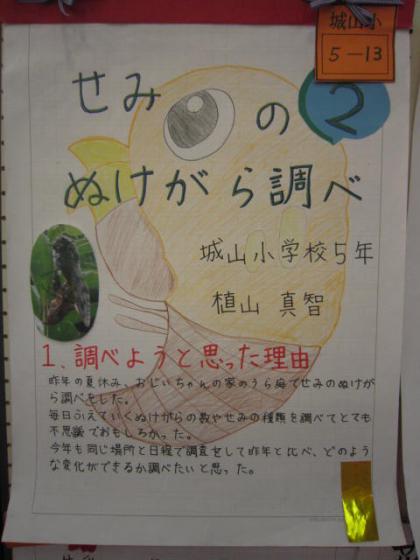 城山小
5-13
せみの②
ぬけがら調べ
城山小学校5年
植山 真智
1、調べようと思った理由
昨年の夏休み、おじいちゃんの家のうら庭でせみのぬけが
ら調べをした。
毎日ふえていくぬけがらの数やせみの種類を調べてとても
不思議でおもしろかった。
今年も同じ場所と日程で調査をして昨年と比べ、どのよう
な変化ができるか調べたいと思った。